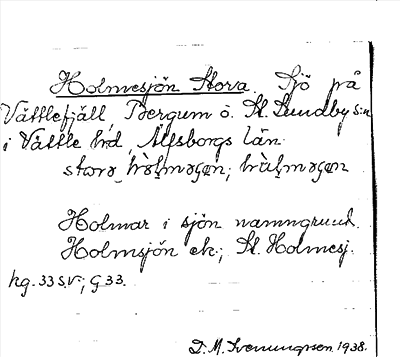 Holmesjön Stora. Sjö på
Vättlefjäll, Bergum o. St. Lundby s:n
i Vättle hd, Älfsborgs län.
Holmar i sjön namngrund.
Holmsjön ek.; St. Holmesj.
hg. 33 S.V.; G 33.
D. M. Svenungsson 1938.